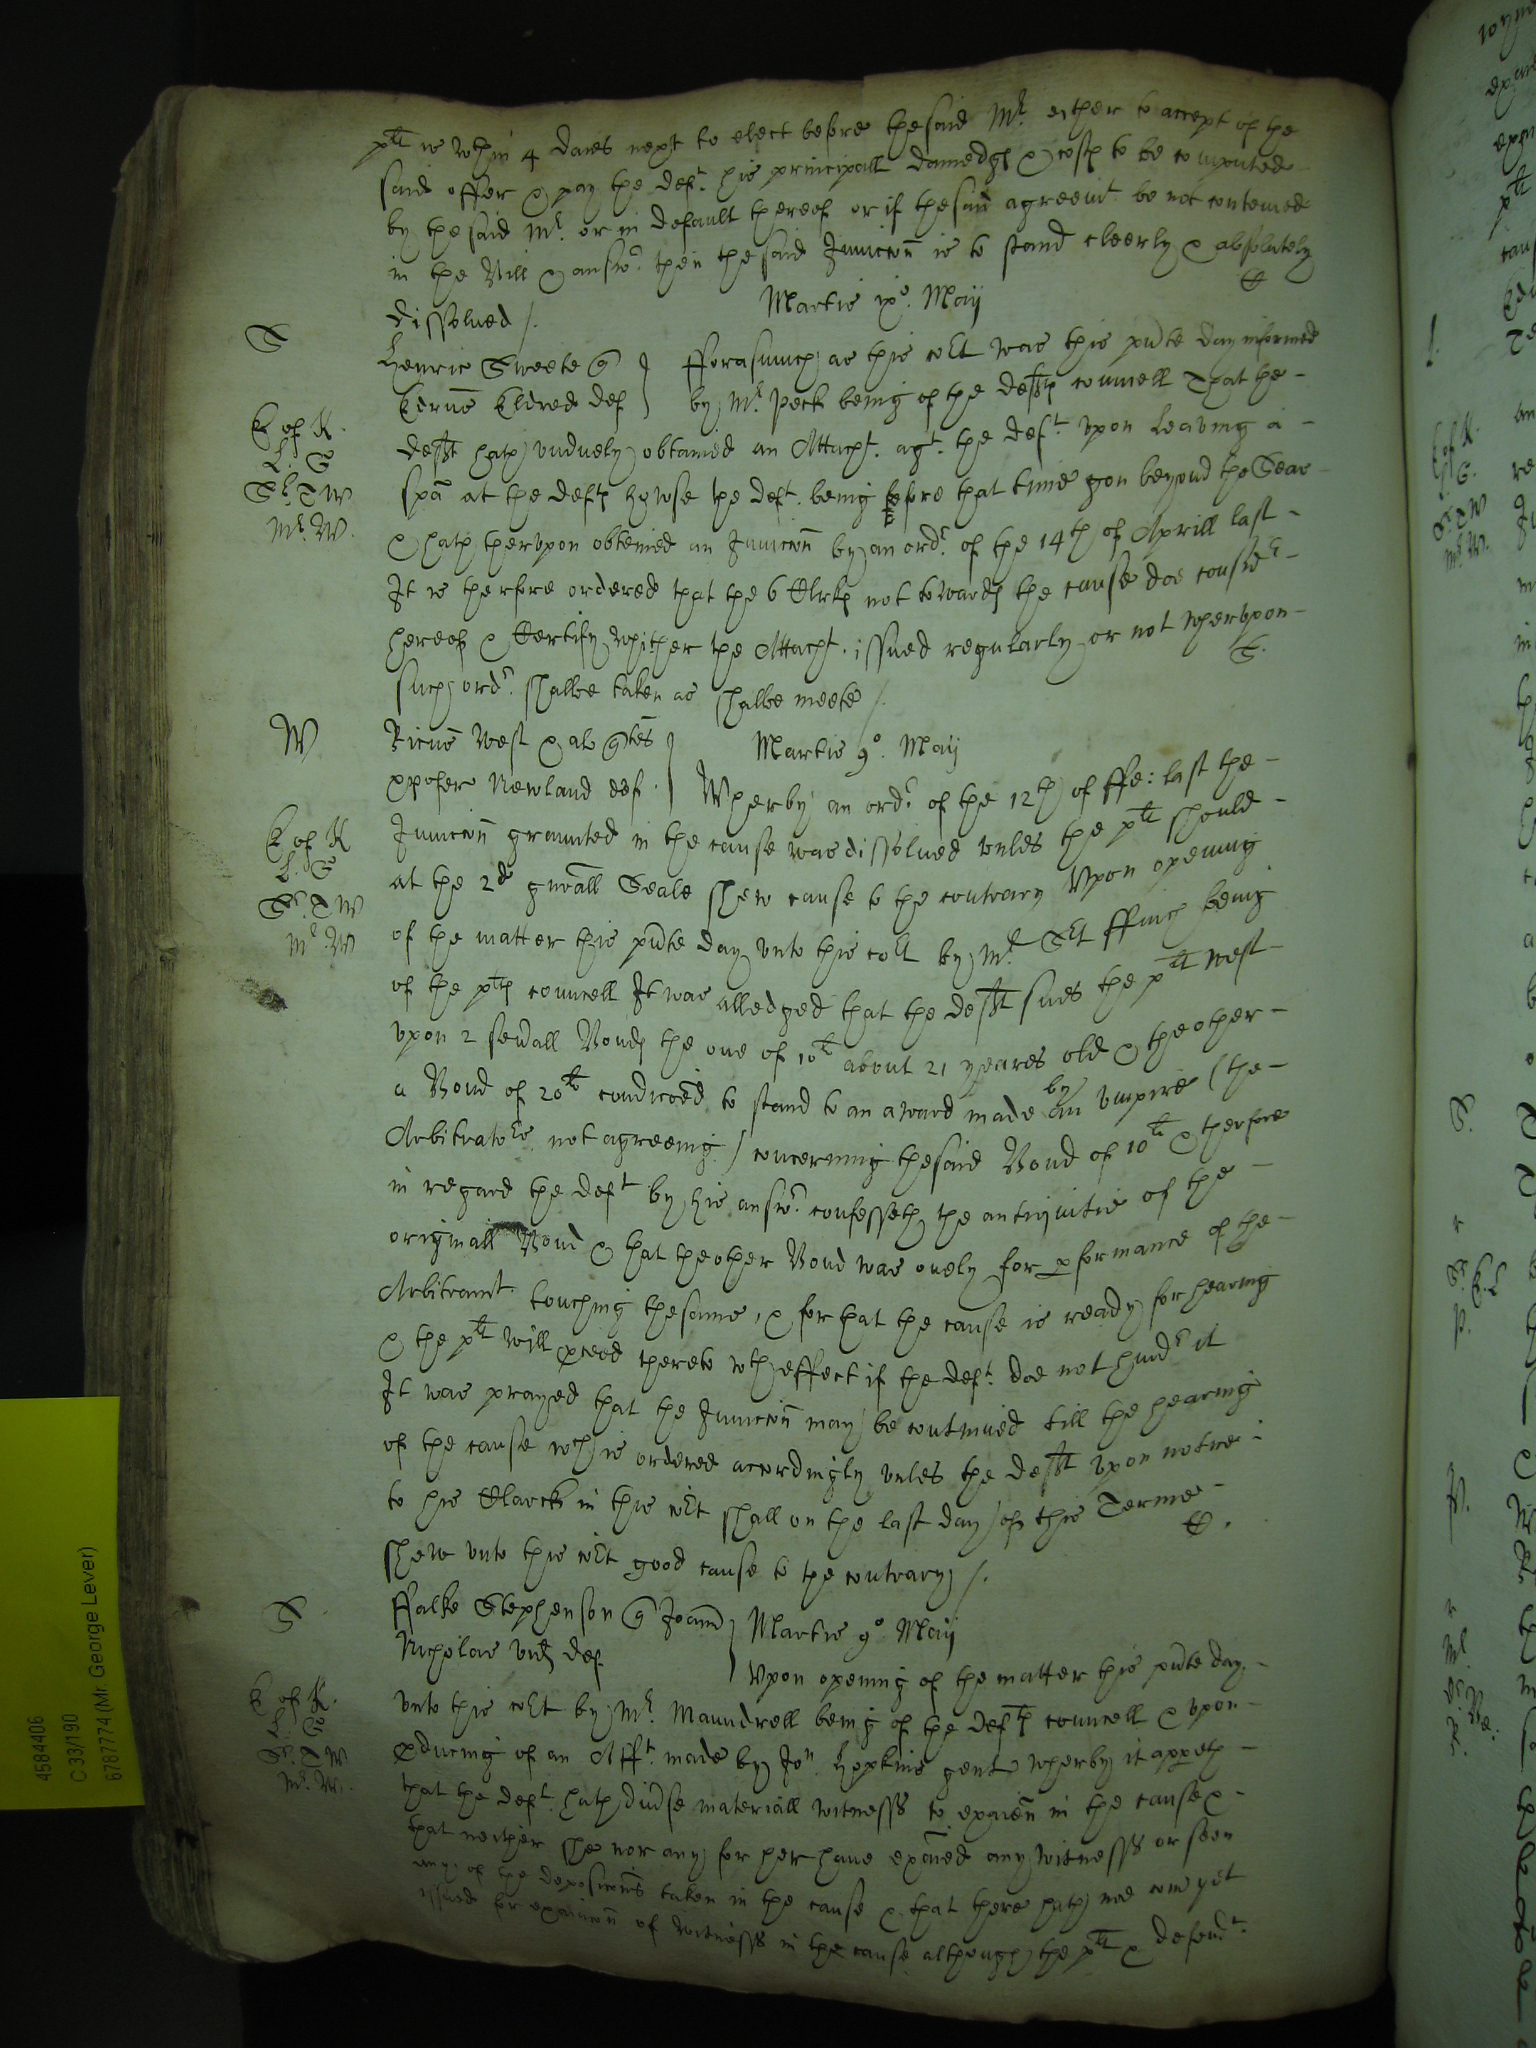 plt is wthin 4 daies next to elect before the said Mr. either to accept of the
said offer & pay the deft. his principall damedgs & costs to be computed
by the said Mr. or in default thereof or if the said agreemt. be not conteined
in the Bill & answr. then the said Iniunccon is to stand cleerly & absolutely
dissolued /.
Martis ixo. Maij
S
Henric Sweete q
Edrus Eldred def
fforasmuch as this cort was this pnte day informed
by Mr Peck being of the defts councell That the
E of K.
L. S
Sr. T W
Mr. W.
deft hath unduely obtained an Attacht. agt. the deft. upon leauing a
spa at the defts howse the deft. being before that time gon beyond the Seas
& hath therupon obteined an Iniunccon by an ordr. of the 14th of Aprill last
It is therfore ordered that the 6 Clrks not towards the cause doe considr
hereof & Certify whither the Attacht. issued regularly or not wherupon
such ordr. shalbe taken as shalbe meete /.
W
Ricus West & al qtes
xpofer Newland def.
Martis 9o. Maij
Wherby an ordr. of the 12th of ffe: last the
E of K
L. S
Sr. T W
Mr. W
Iniunccon graunted in the cause was dissolued unles the plt should
at the 2d gnrall Seale shew cause to the contrary Upon opening
of the matter this pnte day unto this cort by Mr. Srt ffinch being
of the plts councell It was alledged that the deft sues the plt West
upon 2 seuall Bonds the one of 10li about 21 yeares old & the other
a Bond of 20li condiconed to stand to an award made by an umpire (the
Arbitrators not agreeing) concerning the said Bond of 10li & therfore
in regard the deft by his answr. confesseth the antiquitie of the
originall Bond & that the other Bond was onely for pformance of the
Arbitramt. touching the same, & for that the cause is ready for hearing
& the plt will pceed thereto wth effect if the deft. doe not hindr it
It was prayed that the Iniunccon may be continued till the hearing
of the cause wch is ordered accordingly unles the deft upon notice
to his Clarck in this cort shall on the last day of this Terme
shew unto this cort good cause to the contrary /.
S
ffalke Stephenson q Joann
Nicholas vid def
Martis 9o Maij
Upon opening of the matter this pnte day
E of K.
Sr. T W
Mr. W.
unto this cort by Mr. Maundrell being of the defts councell & upon
pducing of an Afft. made by Jon. Hopkins gent wherby it appeth
that the deft. hath diuse materiall witnesss to exaien in the cause &
that neither she nor any for her haue exaied any witnesss or seen
any of the deposicons taken in the cause & that there hath noe com yet
issued for exaicon of witnesss in the cause although the plt & defendt.
4584406
C 33/190
6787774 (Mr. George Lever)